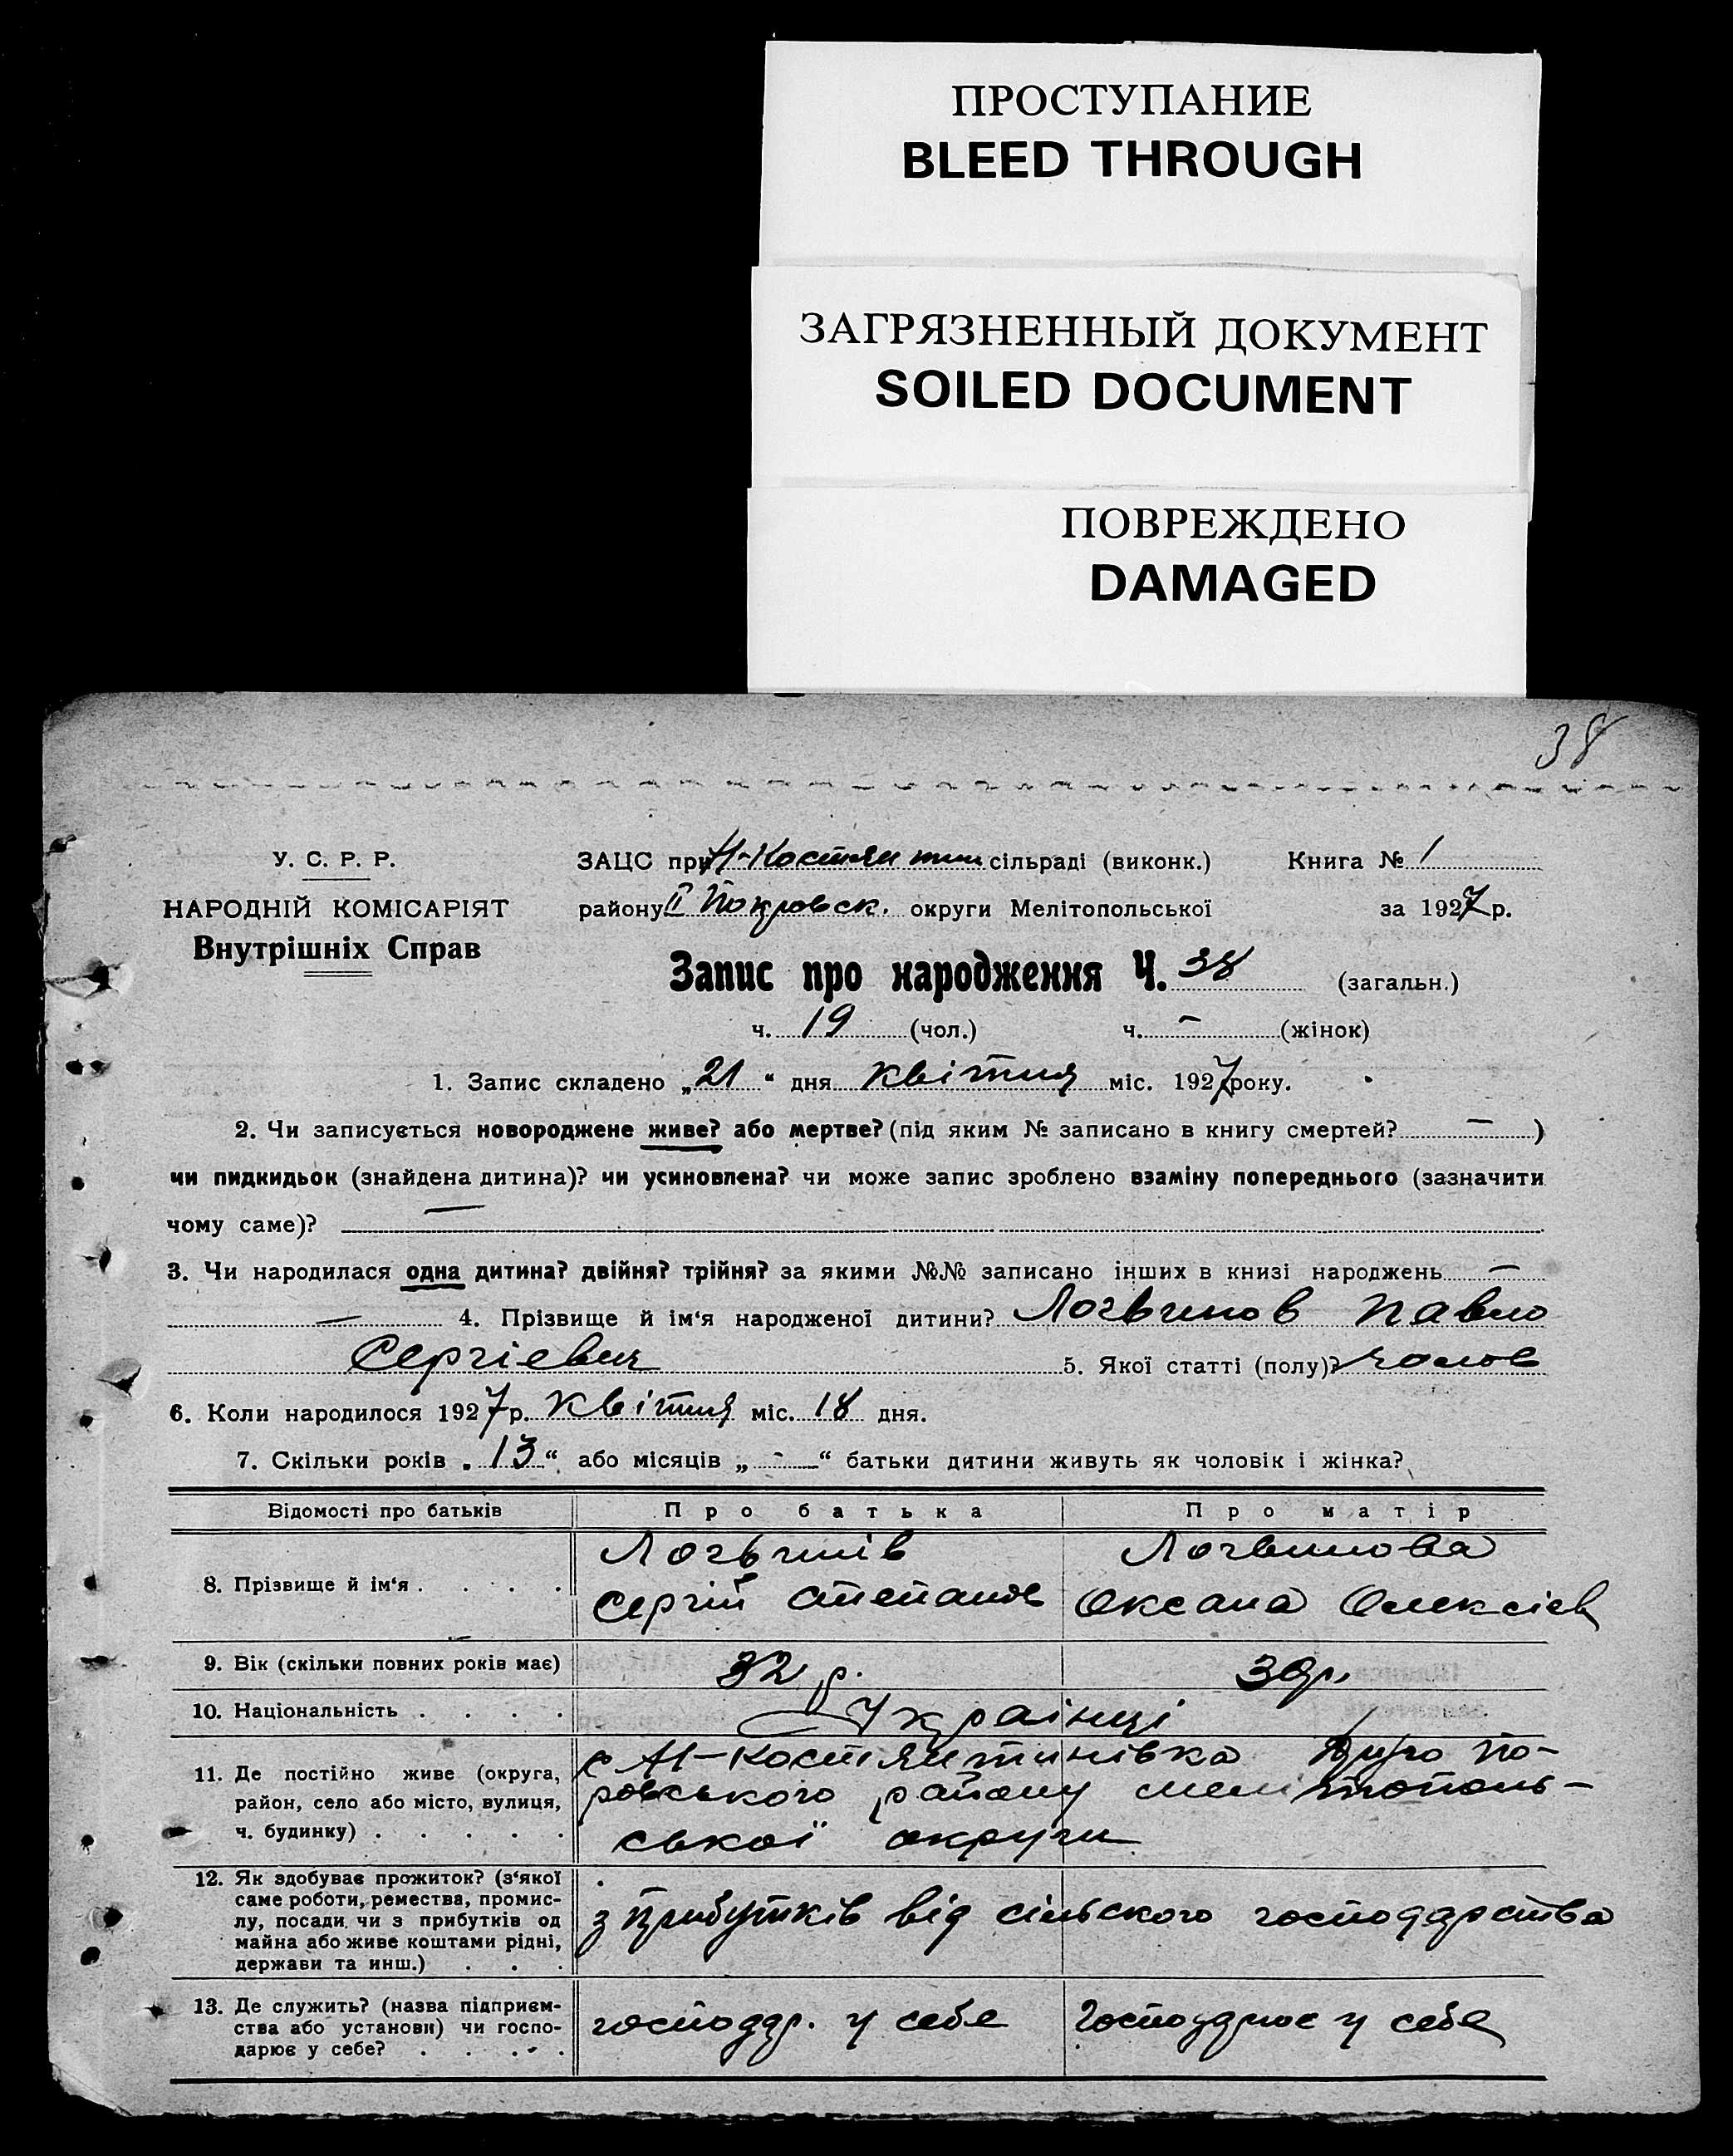 ПРОСТУПАНИЕ
BLEED THROUGH
ЗАГРЯЗНЕННЫЙ ДОКУМЕНТ
SOILED DOCUMENT
ПОВРЕЖДЕНО
DAMAGED
38
У. С. Р. Р.
НАРОДНІЙ КОМІСАРІЯТ
Внутрішніх Справ
ЗАЦС при Н-Костянтин сільраді (виконк.) Книга № 1
району ІІ Покровск. округи Мелітопольської за 1927 р.
Запис про народження Ч. 38 (загальн.)
ч. 19 (чол.) ч. – (жінок)
1. Запис складено „21“ дня квітня міс. 1927 року.
2. Чи записується новороджене живе? або мертве? (під яким № записано в книгу смертей? – )
чи пидкидьок (знайдена дитина)? чи усиновлена? чи може запис зроблено взаміну попереднього (зазначити
чому саме)? —
3. Чи народилася одна дитина? двійня? трійня? за якими №№ записано інших в книзі народжень –
– 4. Прізвище й ім‘я народженої дитини? Логвинов Павло
Сергієвич 5. Якої статті (полу)? чолов
6. Коли народилося 1927 р. квітня міс. 18 дня.
7. Скільки років „13“ або місяців „-“ батьки дитини живуть як чоловік і жінка?
Відомості про батьків Про батька Про матір
8. Прізвище й ім‘я . . . . Логвинів Сергій Степанов Логвинова Оксана Олексієв
9. Вік (скільки повних років має) 32 р. 30 р.
10. Національність . . . . Українці
11. Де постійно живе (округа,
район, село або місто, вулиця,
ч. будинку) . . . . .
с Н-Костянтинівка Друго По-
ровського району мелітополь-
ської округи
12. Як здобуває прожиток? (з‘якої
саме роботи, ремества, промис-
лу, посади, чи з прибутків од
майна або живе коштами рідні,
держави та инш.) . . .
з прибутків від сільского господарства
13. Де служить? (назва підприєм-
ства або установи) чи госпо-
дарює у себе? . . . .
господар. у себе Господарює у себе